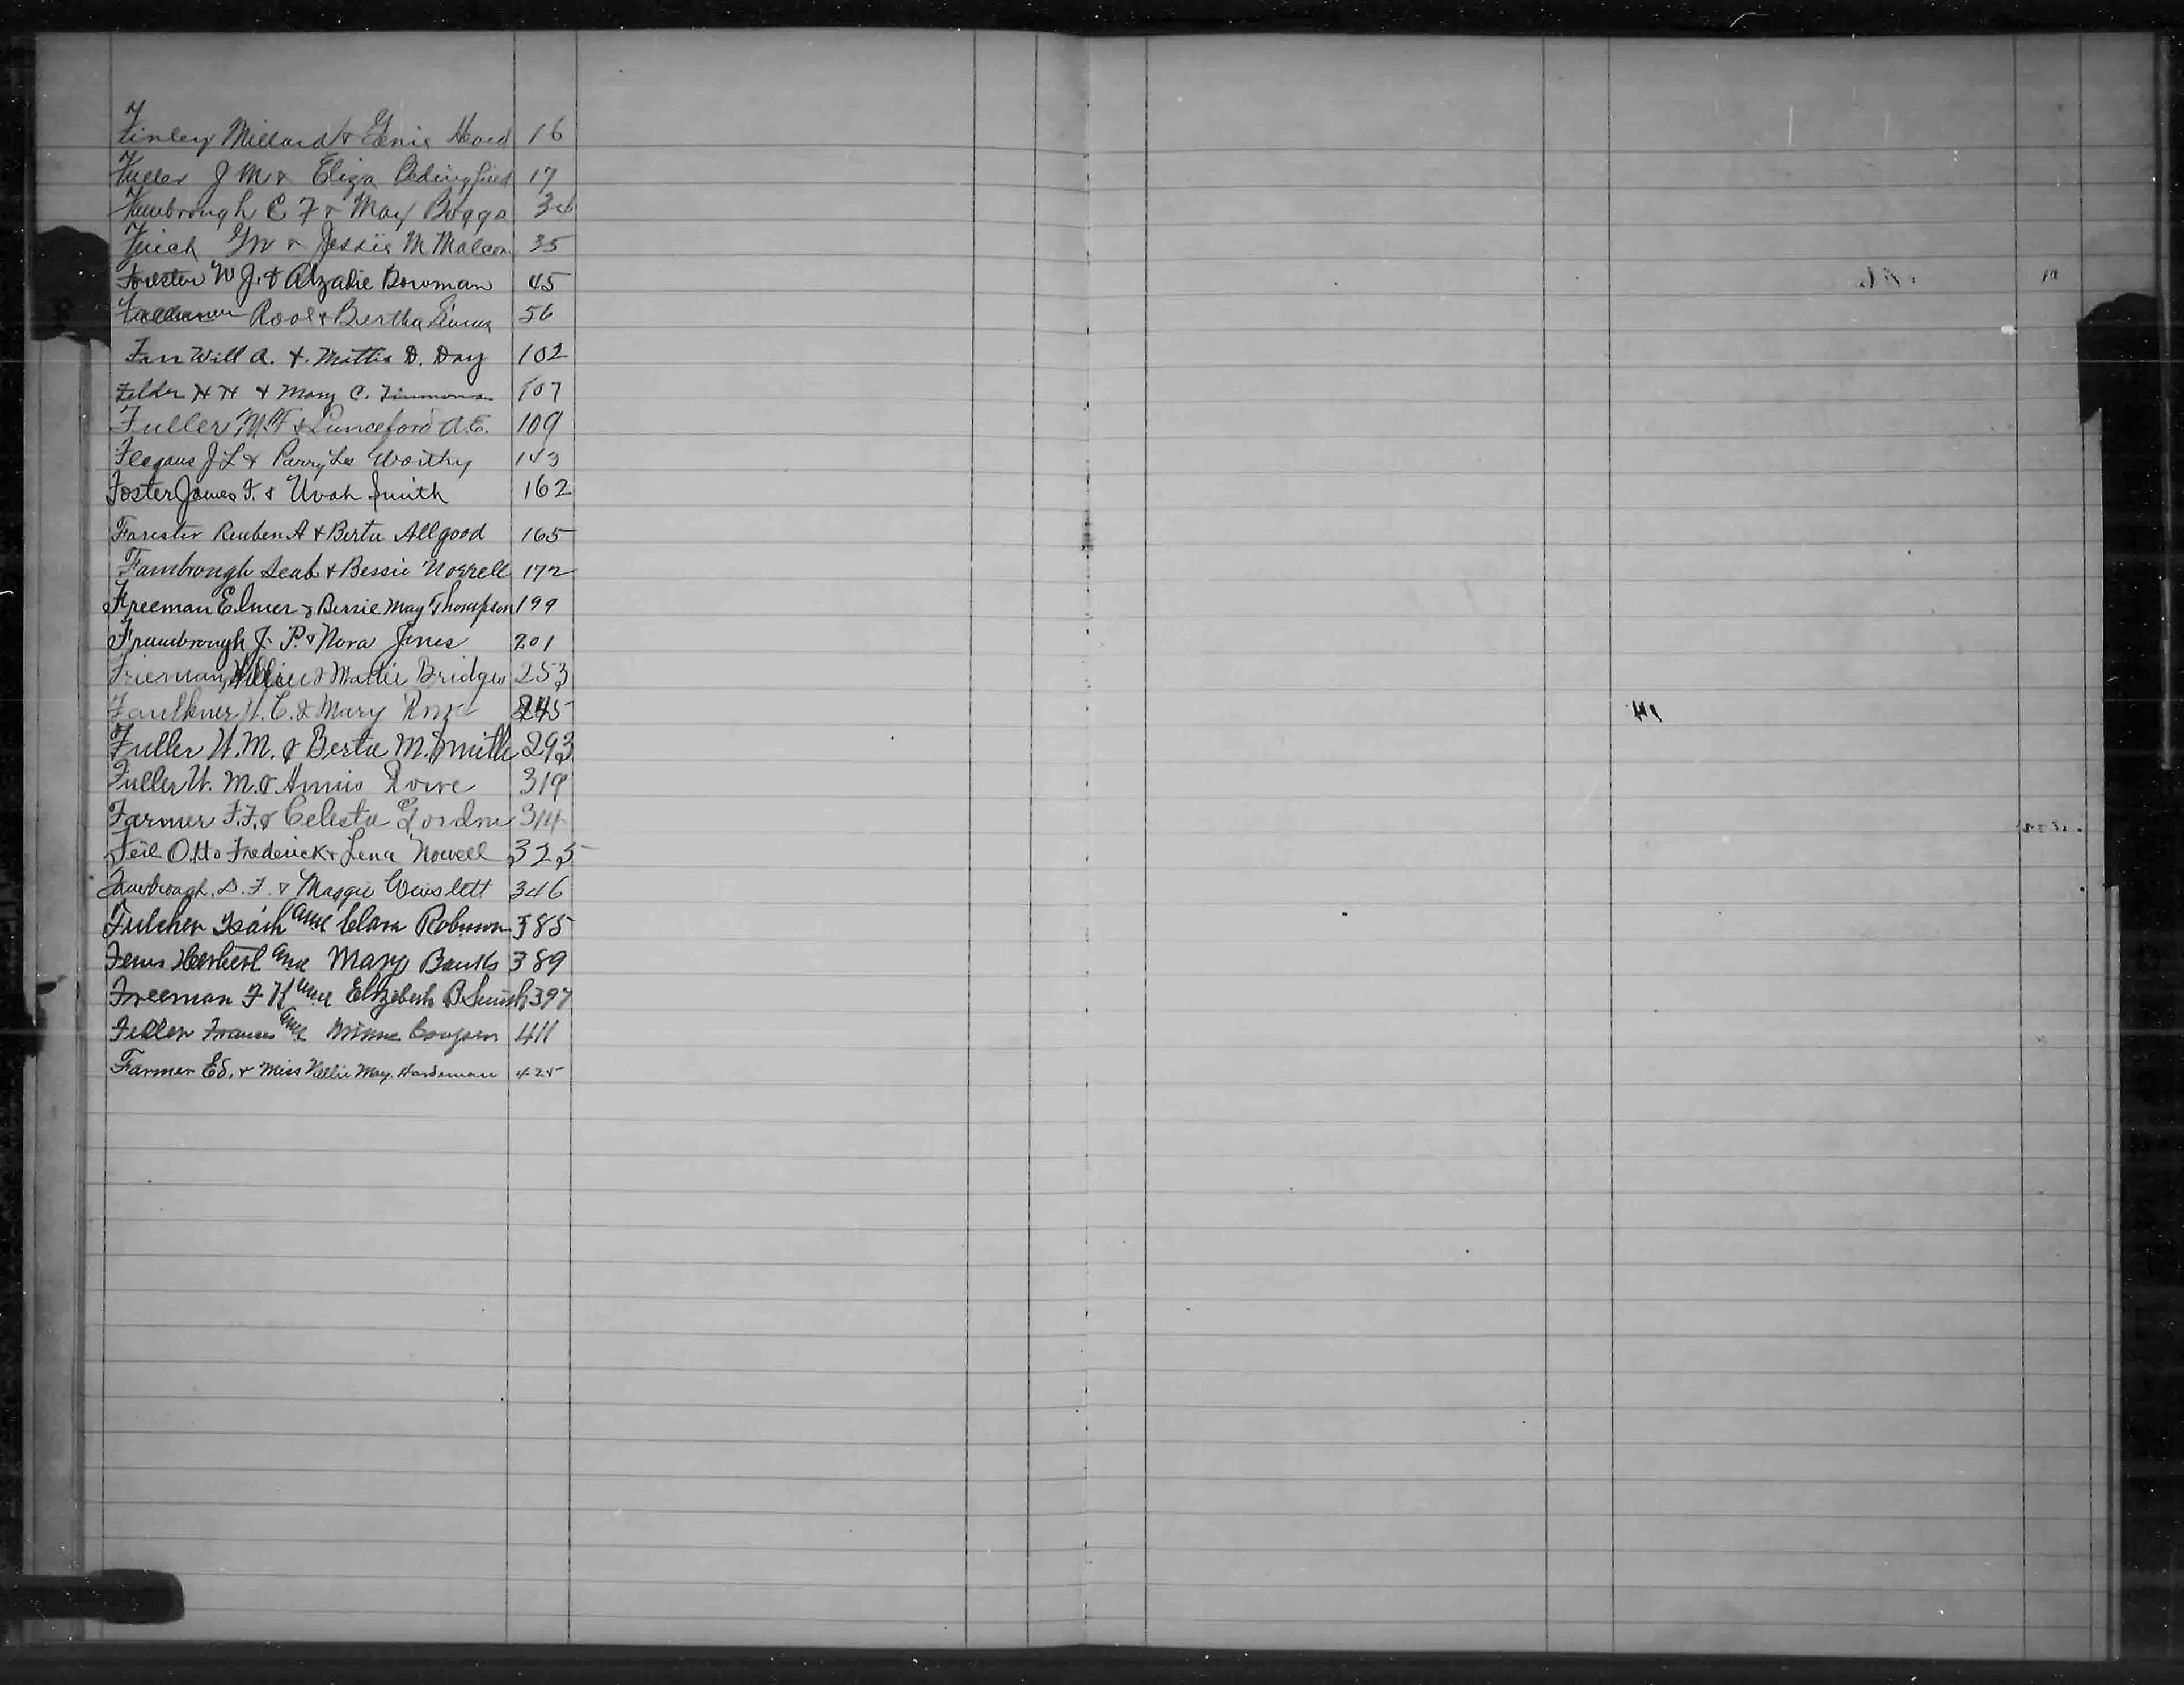 Finley Millard & Genie Heard 16
Fuller J M & Eliza Bedingfield 17
Fambrough C F & May Boggs 34
Finch & Jessie M Malcom 35
Forester W J. & Alzadie Bowman 45
Rool & Bertha 56
Will A. & Mattie D. Day 102
Felder H H & Mary C. Timmons 107
Fuller M. F & Lunceford A. E. 109
J L & Parry Lee Worthy 143
Foster James F. & Uvah Smith 162
Forester Reuben A & Berta Allgood 165
Fambrough Seab & Bessie Norrell 172
Freeman Elmer & Bessie May Thompson 199
Frambrough J. P. & Nora Jones 201
Frieman & Mattie Bridges 253
Faulkner W. C. & Mary 245
Fuller W. M. & Berta M. Smith 293
Fuller W. M. & Annis Rowe 319
Farmer F. F. & Celesta 314
Feil Otto Frederick & Lena Nowell 325
Fambrough. D. F. & Maggie Winslett 346
Fulcher and Clara Robinson 385
Herbert and Mary Banks 389
Freeman F K and Elizebeth B. Smith 397
Frances and Minnie 411
Farmer Ed. & Miss Nellie May. Hardeman 425